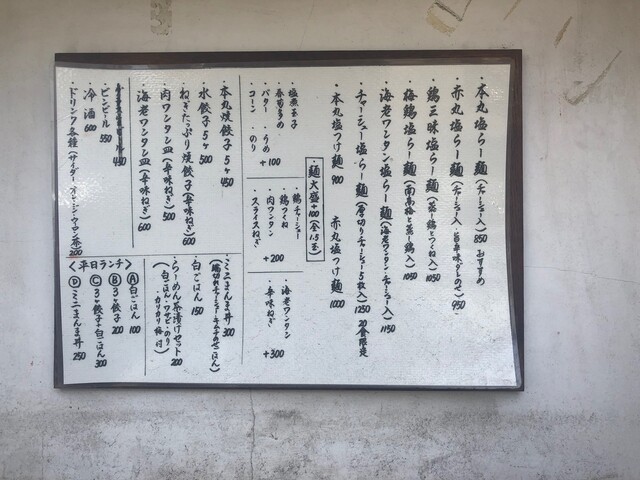 ・本丸塩らー麺(チャーシュー入)850 おすすめ
・赤丸塩らー麺(チャーシュー入・旨辛味玉のせ)950
・鶏三昧塩らー麺(蒸し鶏とつくね入)1050
・梅鶏塩らー麺(南高梅と蒸し鶏入)1050
・海老ワンタン塩らー麺(海老ワンタン・チャーシュー入)1150
・チャーシュー塩らー麺(厚切りチャーシュー5枚入)1250 20食限定
・本丸塩つけ麺 900 赤丸塩つけ麺 1000
・麺大盛+100(全1.5玉)
・塩煮玉子
・春菊
・バター
・コーン ・のり
+100
・鶏チャーシュー
・鶏つくね
・肉ワンタン
・スライスねぎ
+200
・海老ワンタン
・辛味ねぎ
+300
・本丸焼餃子 5ヶ 450
・水餃子 5ヶ 500
・ねぎたっぷり焼餃子(辛味ねぎ)600
・肉ワンタン皿(辛味ねぎ)500
・海老ワンタン皿(辛味ねぎ)600
・ミニまんま丼 300
(端切れチャーシューキムチのせごはん)
・白ごはん 150
・らーめん茶漬けセット 200
(白ごはん・ワサビ・のり・カリカリ梅付)
・ビンビール 550
・冷酒 600
・ドリンク各種(サイダー・オレンジ・ウーロン茶)200
〈平日ランチ〉
Ⓐ白ごはん 100
Ⓑ3ヶ餃子 200
Ⓒ3ヶ餃子+白ごはん 300
Ⓓミニまんま丼 250